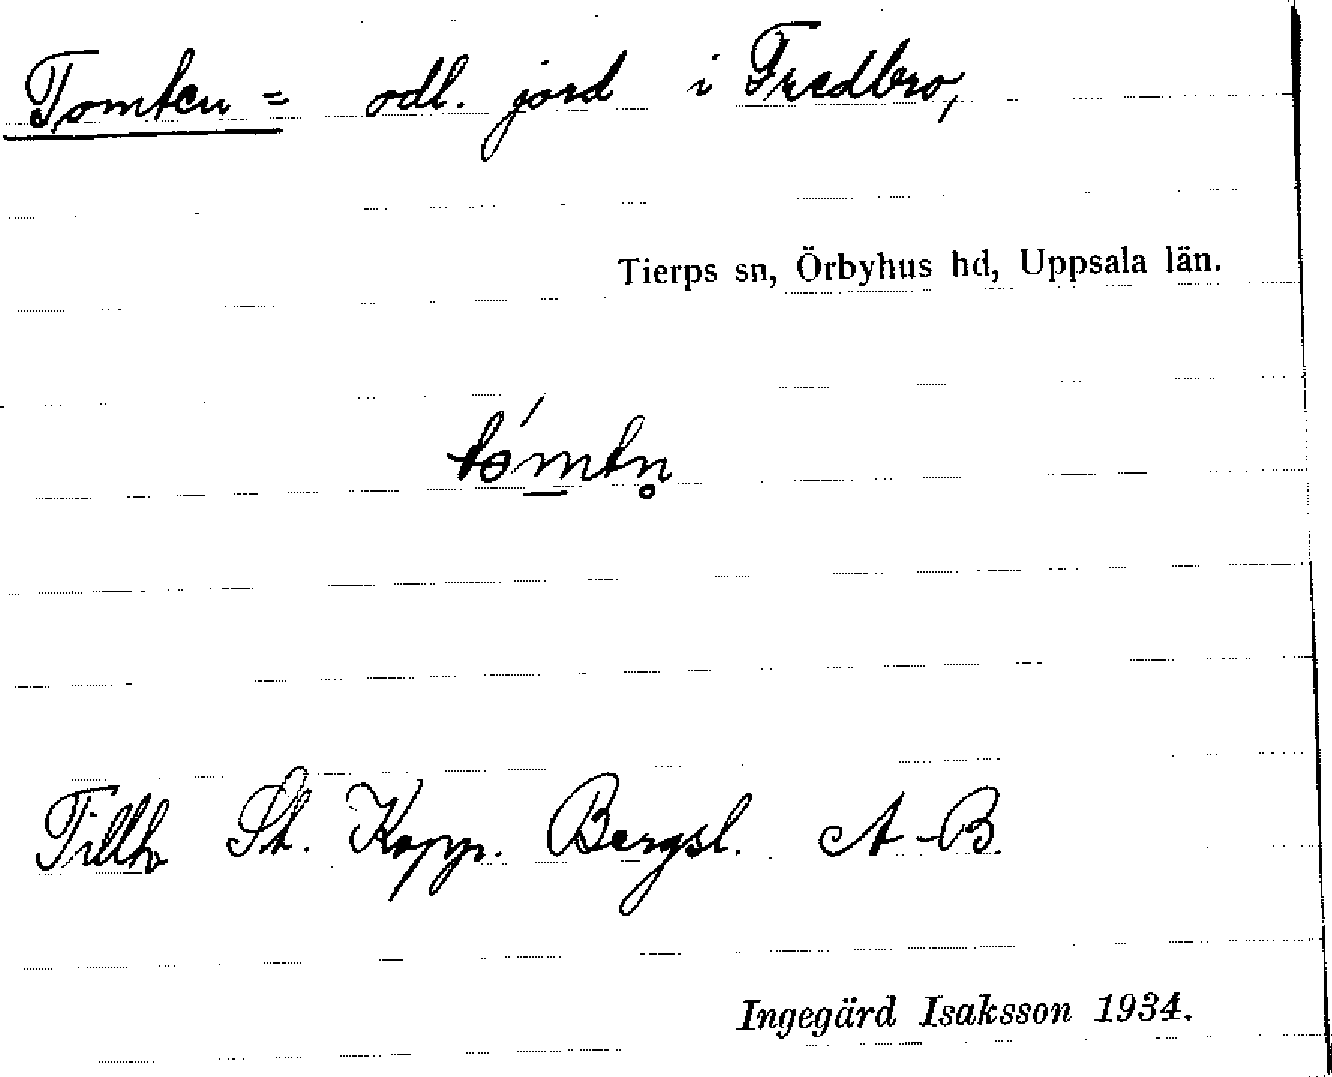 Tomten = odl. jord i Fredbro,
Tierps sn, Örbyhus hd, Uppsala län.
Tillh St. Kopp. Bergsl. A-B.
Ingegärd Isaksson 1934.